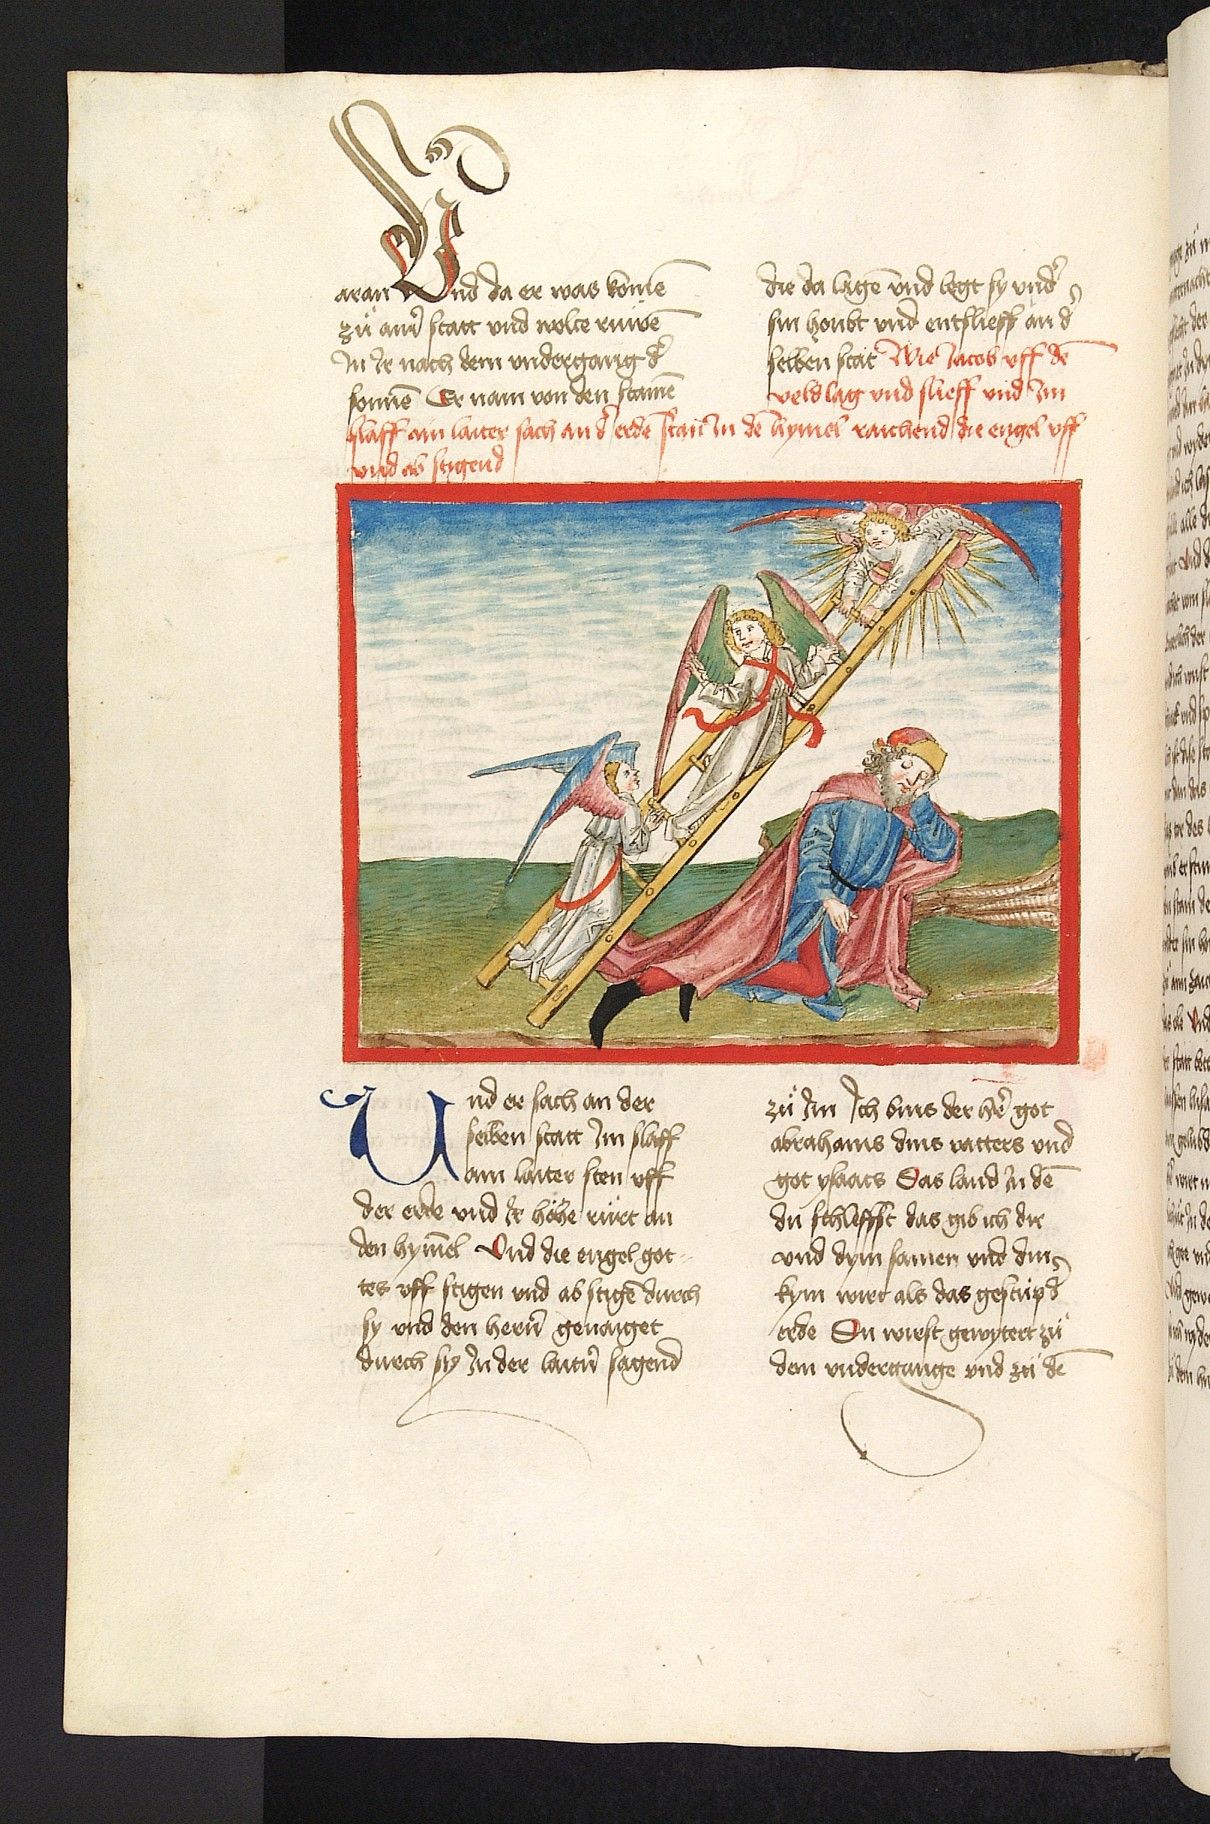 aran Und da er was komē
zů ainr̄ statt und wolte ruwē
In Ir nach dem undergang d̄
sonnē Er nam von den stainē
die da lagē und legt sy und̄
sin houbt und entslieff an d̄
selben stat Wie Jacob uff dē
veld lag und slieff und Im
slaff ain laiter sach an d̄ erdē stan In dē hymel raichend die engel uff
und ab stigend
Und er sach an der
selben statt Im slaff
ain laiter sten uff
der erde und Ir höhe rürt an
den hym̄el Und die engel got
tes uff stigen und ab stigē durch
sy und den herrn̄ genaiget
durch sy In der laitr̄n sagend
zů Im Ich bins der hē̄r got
abrahams dins vatters und
got ysaacs Das land In dē
du schleffst das gib ich dir
und dym samen und din
kym wirt als das gestüp d̄
erde Du wirst gewytert zů
dem undergange und zů dē